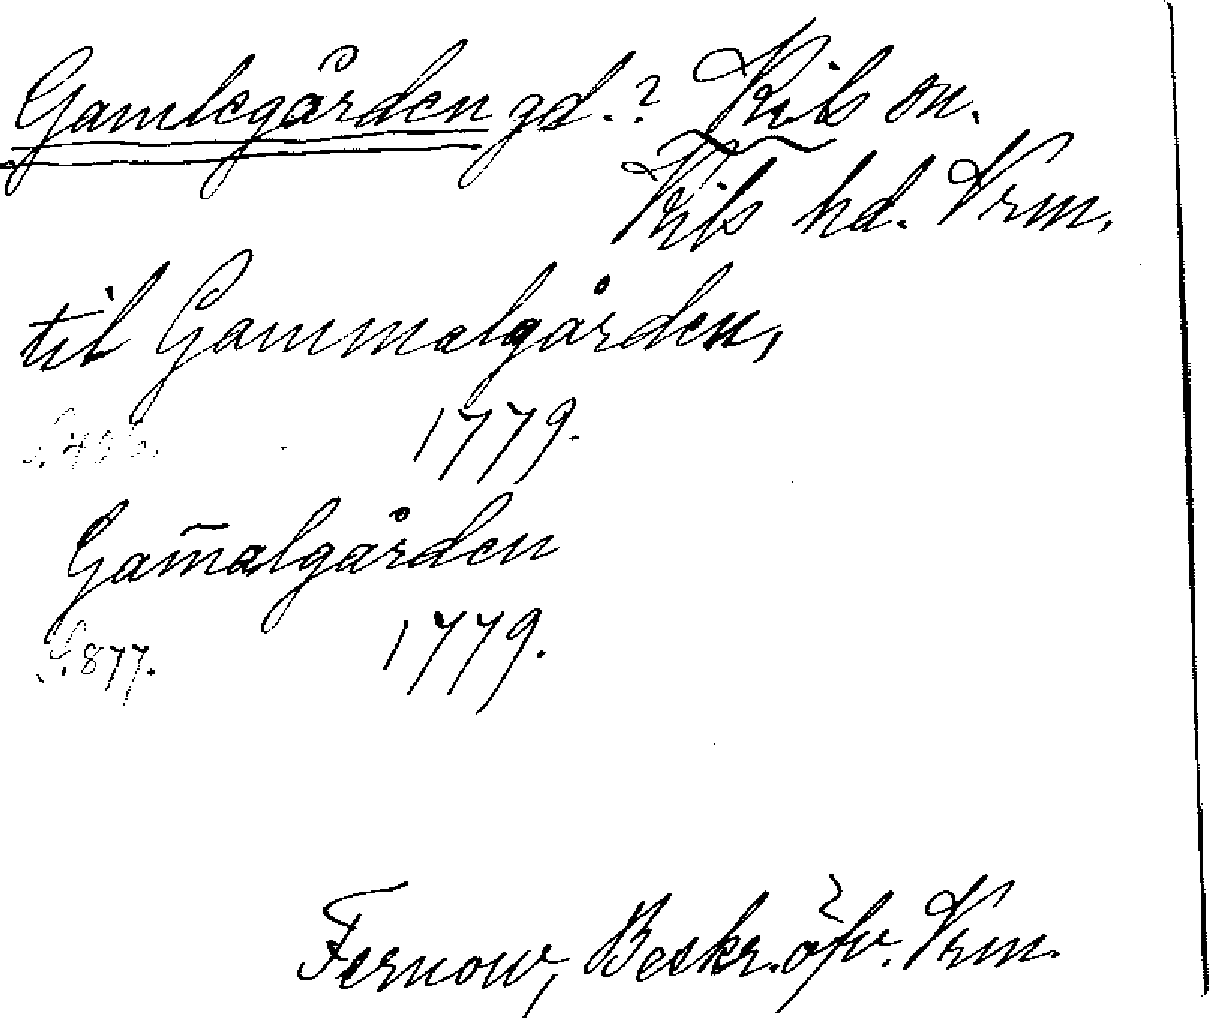 Gamlegården gd.? Kils sn.
Kils hd. Vrm.
til Gammalgården,
1779.
Gam̄algården
S. 877. 1779.
Fernow, Beskr. öfv. Vrm.